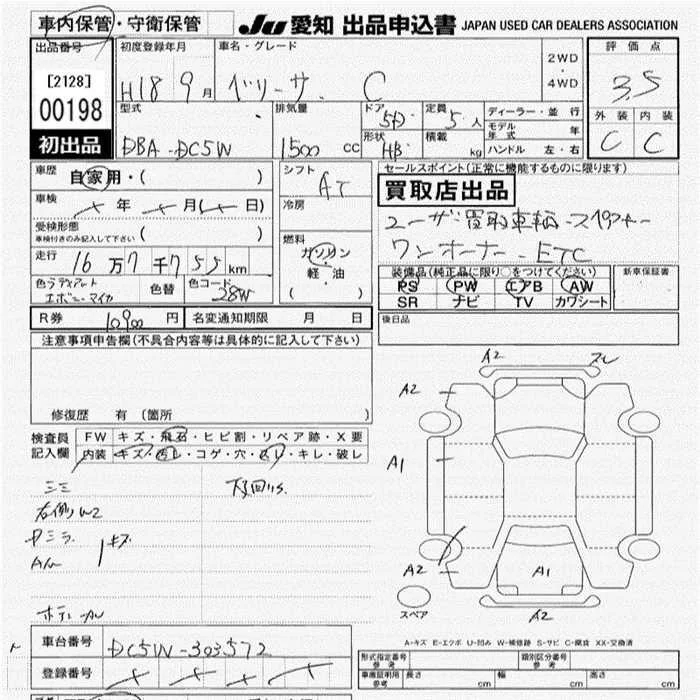 車内保管・守衛保管
JU 愛知 出品申込書 JAPAN USED CAR DEALERS ASSOCIATION
出品番号 初度登録年月 車名・グレード 2WD・4WD 評価点
[2128] 00198 H18 9月 ベリーサ C 3.5
初出品
型式 排気量 ドア 5D 定員 5人 ディーラー・並行 外装 内装
DBA-DC5W 1500cc 形状 HB 積載 kg モデル年式 年 C C
ハンドル 左・右
車歴 自家用・( ) シフト AT セールスポイント(正常に機能するものに限ります)
買取店出品
車検 年 月( 日) 冷房
ユーザー買取車輌 スペアキー
受検形態 車検付きのみ記入して下さい ( )
ワンオーナー ETC
走行 16万7千755km 燃料 ガソリン・軽・油 ( )
装備品(純正品に限り○をつけてください) 新車保証書
PS PW エアB AW
SR ナビ TV カワシート
色 ラディアントエボニーマイカ 色替 色コード 28W
R券 10900円 名変通知期限 月 日 後日品
注意事項申告欄(不具合内容等は具体的に記入して下さい)
修復歴 有 (箇所 )
検査員記入欄 FW キズ・飛石・ヒビ割・リペア跡・X要
内装 キズ・汚レ・コゲ・穴・スレ・キレ・破レ
右側 W2
キズ
A2 スレ
A2
A1
A2 A1
A2
スペア
A-キズ E-エクボ U-凹み W-補修跡 S-サビ C-腐食 XX-交換済
車台番号 DC5W-303572
登録番号
形式指定番号 参考 類別区分番号 参考
車庫証明用 参考 長さ cm 幅 cm 高さ cm